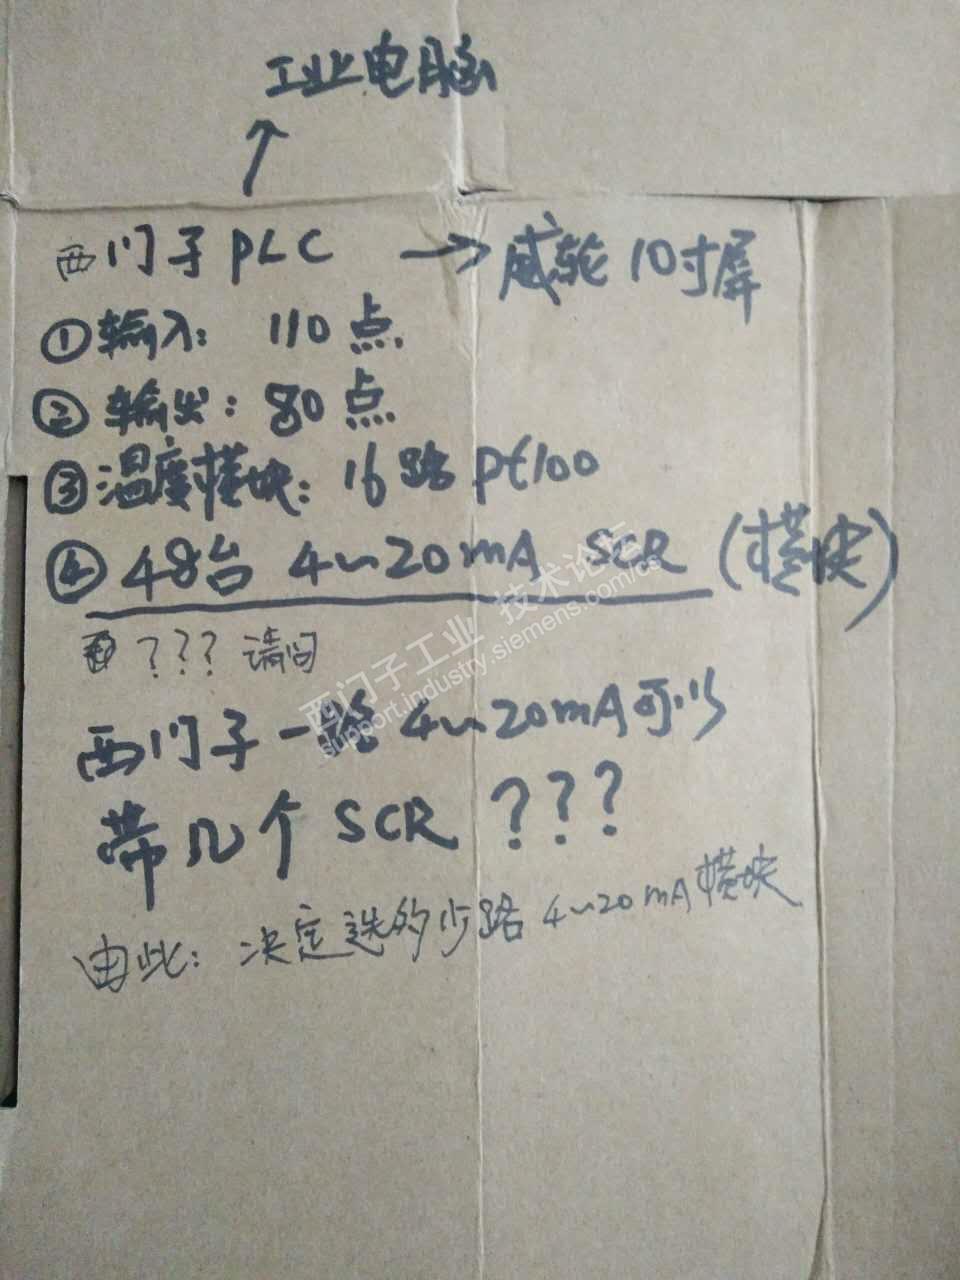 工业电脑
西门子 PLC → 威轮 10寸屏
①输入: 110 点
②输出: 80 点
③温度模块: 16路 Pt100
④48台 4~20mA SCR (模块)
西 ? ? ? 请问
西门子一路 4~20mA可以
带几个 SCR ? ? ?
由此: 决定选的少路 4~20mA模块
西门子工业 技术论坛
support.industry.siemens.com/cs